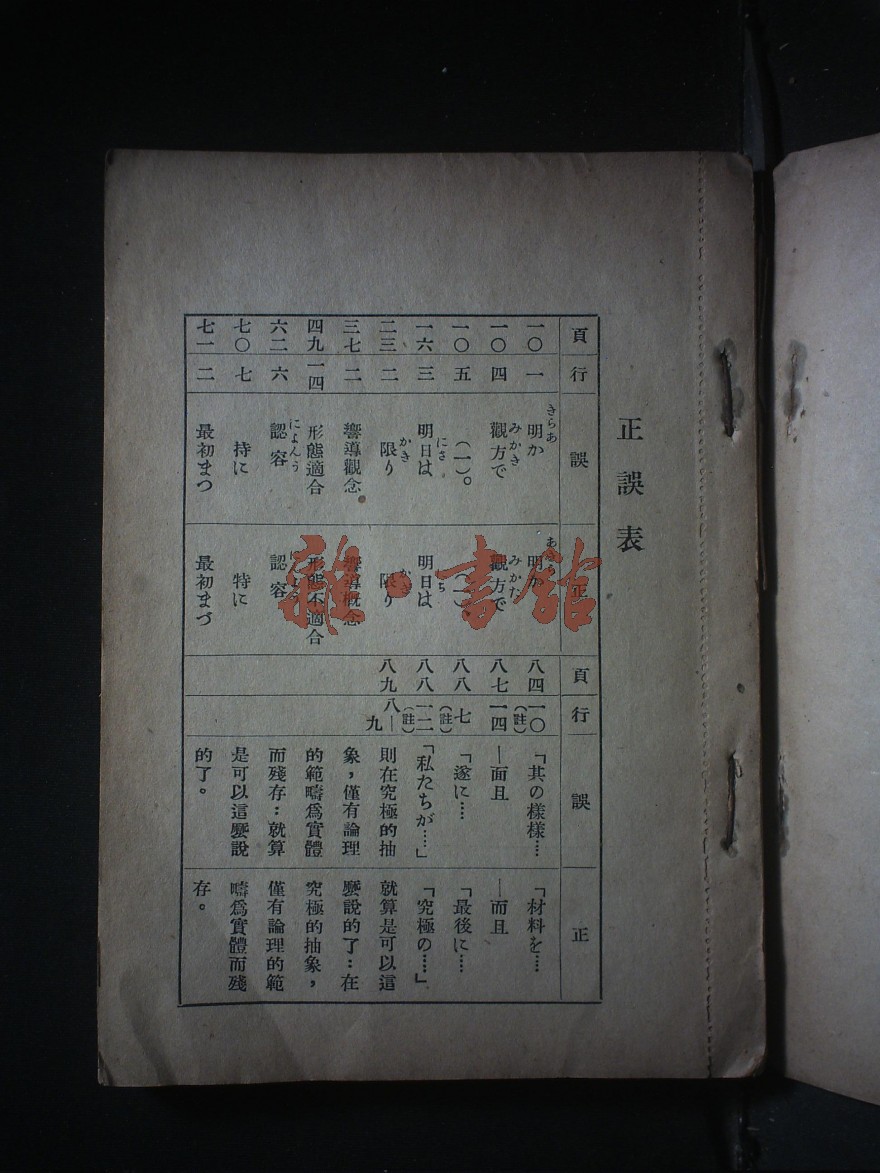 正誤表
頁 行 誤 正
一〇 一 明か 明か
一〇 四 觀方で 觀方で
一〇 五 (一)。
一六 三 明日は 明日は
二三 二 限り 限り
三七 二 響導觀念。 響導概念
四九 一四 形態適合 形態不適合
六二 六 認容 認容
七〇 七 持に 特に
七一 二 最初まつ 最初まづ
頁 行 誤 正
八四 一〇(註) 「其の樣樣… 「材料を…
八七 一四 —面且 —而且
八八 七(註) 「遂に… 「最後に…
八八 一二(註) 「私たちが…」 「究極の…」
八九 八—九 則在究極的抽 就算是可以這
象，僅有論理 麼說的了：在
的範疇爲實體 究極的抽象，
而殘存：就算 僅有論理的範
是可以這麼說 疇爲實體而殘
的了。 存。
雜·書館